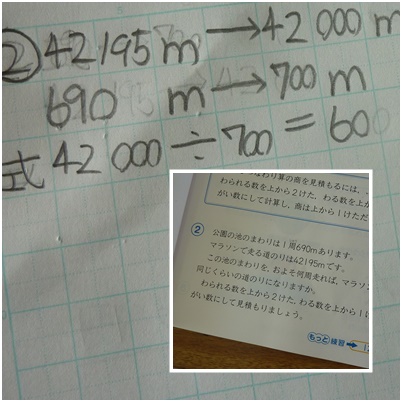 ② 42195m→42000m
690m→700m
式 42000÷700=600
わり算の商を見積もるには、
わられる数を上から2けた、わる数を上か
がい数にして計算し、商は上から1けただ
② 公園の池のまわりは1周690mあります。
マラソンで走る道のりは42195mです。
この池のまわりを、およそ何周走れば、マラソ
同じくらいの道のりになりますか。
わられる数を上から2けた、わる数を上から1け
がい数にして見積もりましょう。
もっと練習→